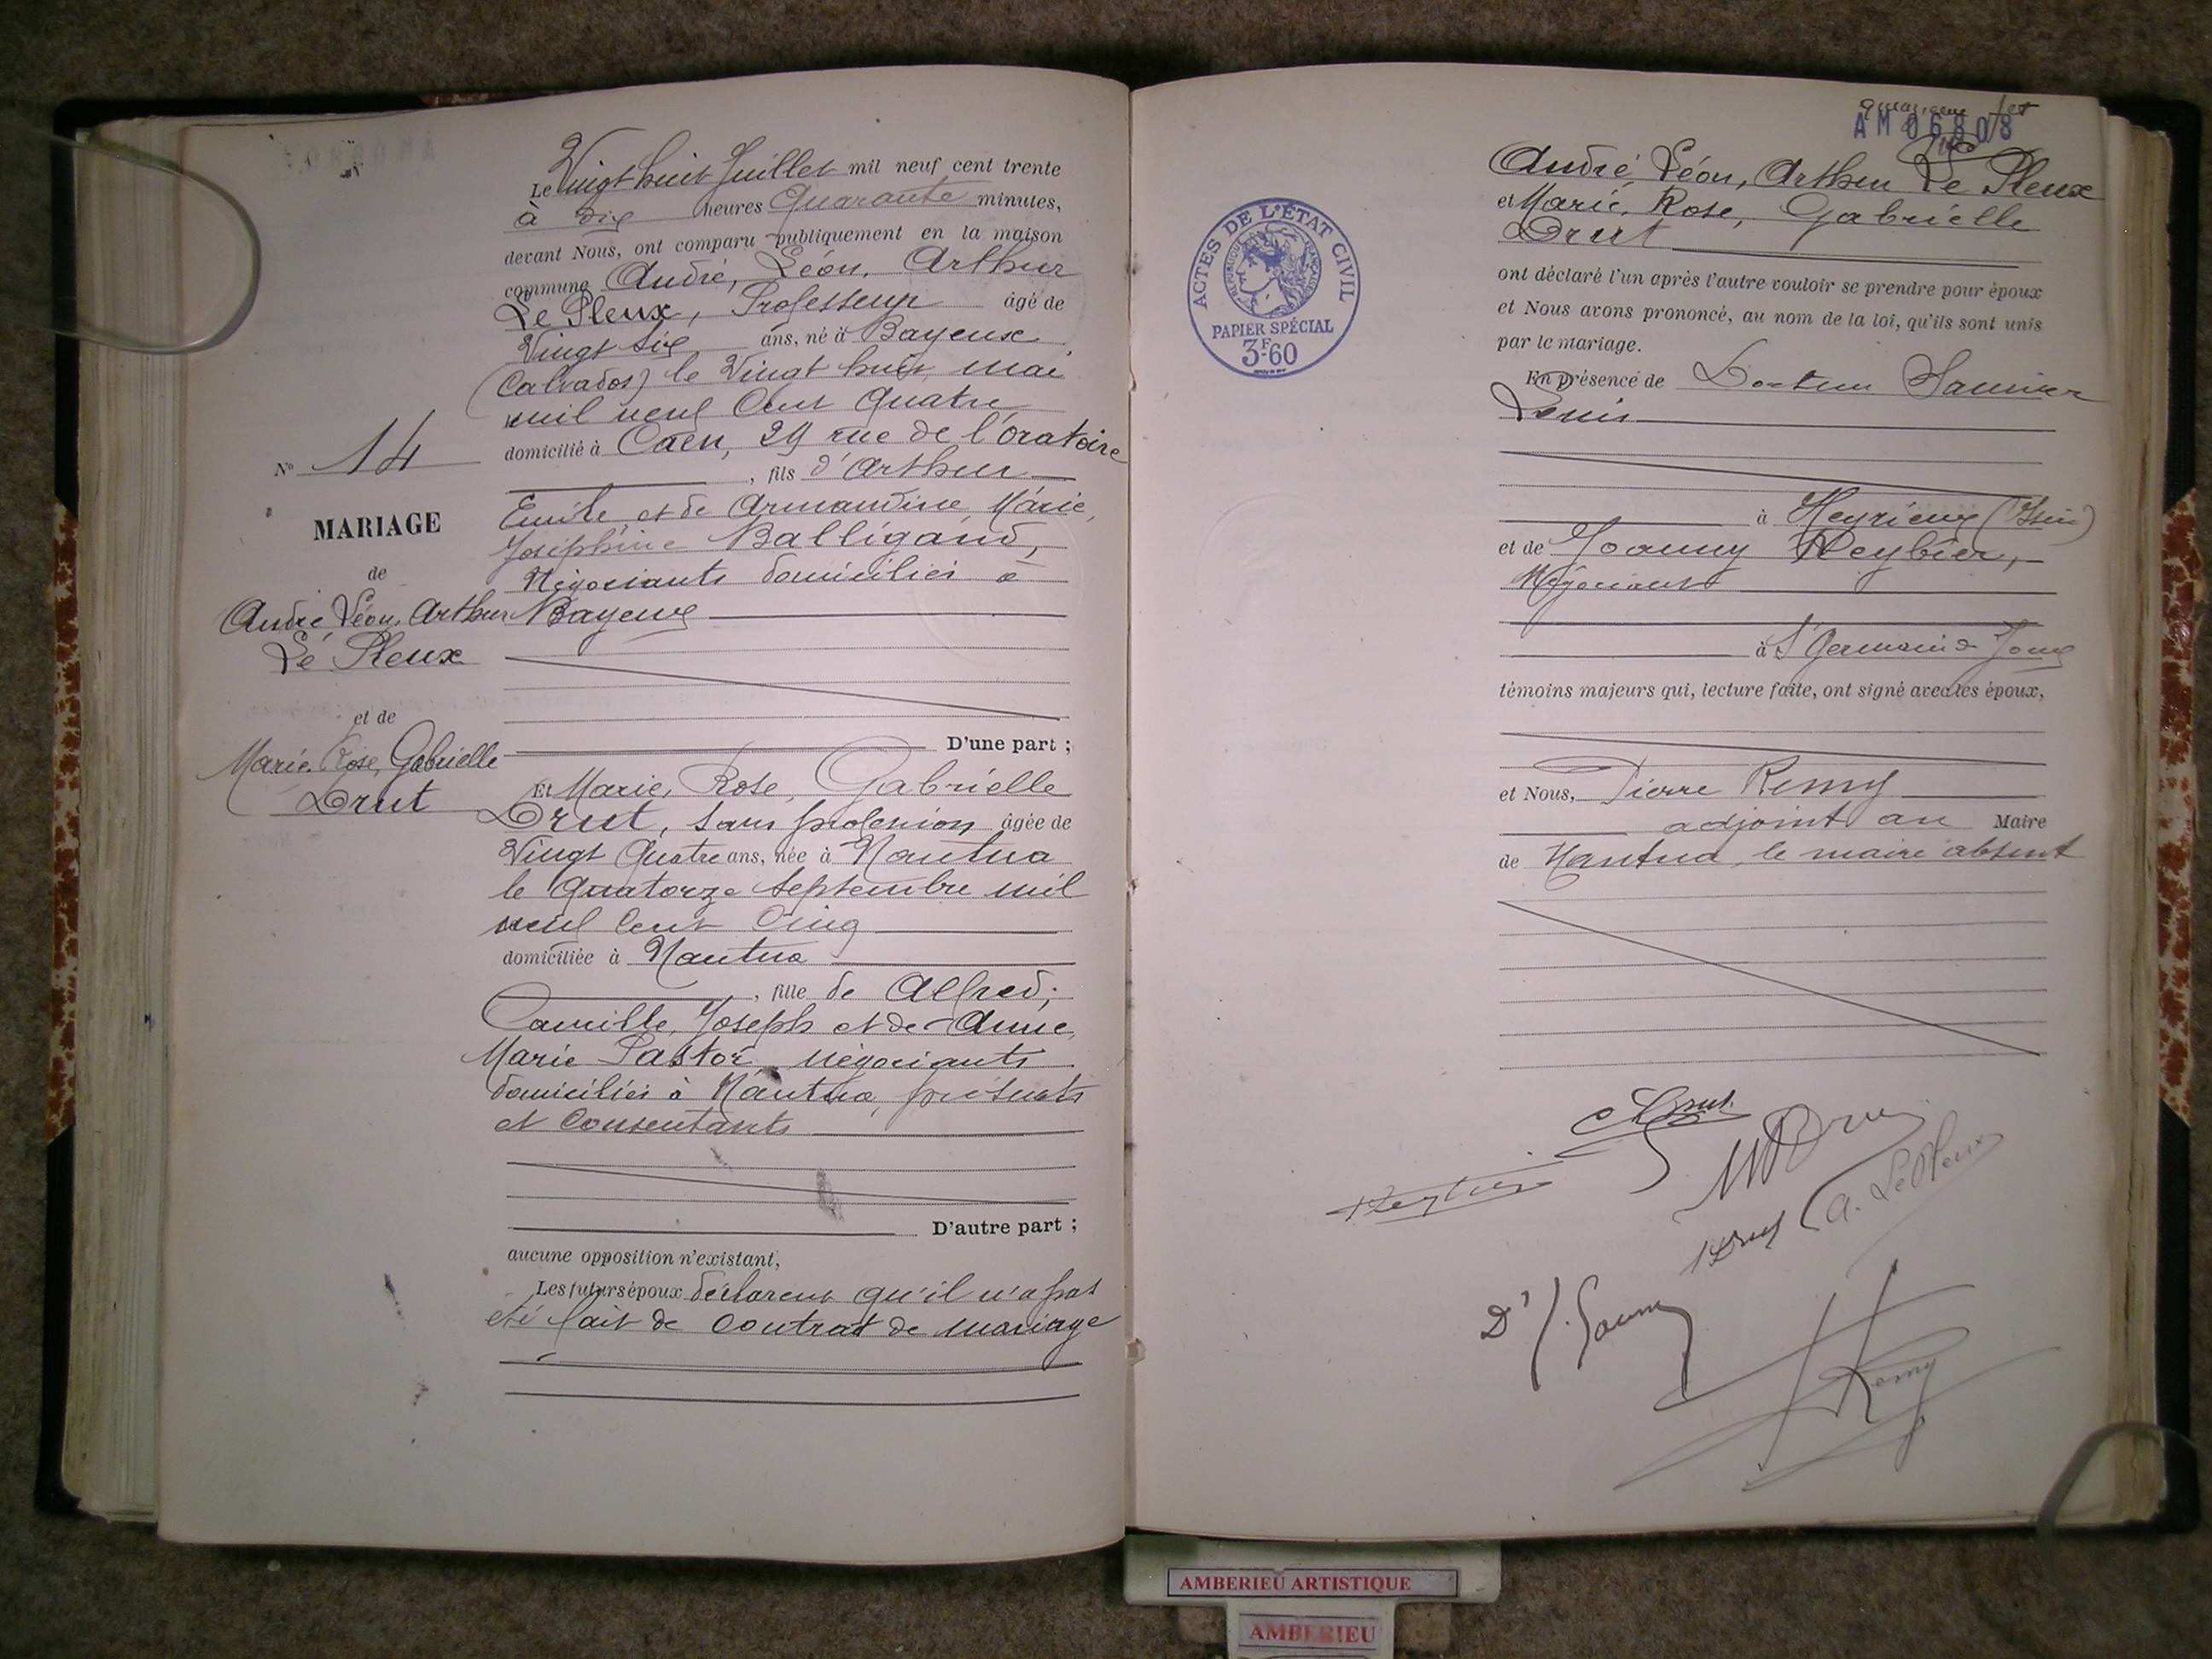 Le Vingt huit Juillet mil neuf cent trente
à dix heures Quarante minutes,
devant Nous, ont comparu publiquement en la maison
commune André, Léon, Arthur
Le Pleux, Professeur âgé de
Vingt Six ans, né à Bayeux
(Calvados) le Vingt huit mai
mil neuf Cent Quatre
domicilié à Caen, 29 rue de l'oratoire
, fils d'Arthur
Emile et de Armandine, Marie,
Joséphine Balligand,
Négociants domiciliés à
Bayeux
D'une part ;
Et Marie, Rose, Gabrielle
Drut, sans profession âgée de
Vingt Quatre ans, née à Nantua
le Quatorze Septembre mil
neuf Cent Cinq
domiciliée à Nantua
, fille de Alfred,
Camille, Joseph et de Anne,
Marie Pastor négociants
domiciliés à Nantua, présents
et Consentants
D'autre part ;
aucune opposition n'existant,
Les futurs époux déclarent qu'il n'a pas
été fait de Contrat de mariage
N° 14
MARIAGE
de
André Léon, Arthur
Le Pleux
et de
Marie, Rose, Gabrielle
Drut
AM 06808
André Léon, Arthur Le Pleux
et Marie, Rose, Gabrielle
Drut
ont déclaré l'un après l'autre vouloir se prendre pour époux
et Nous avons prononcé, au nom de la loi, qu'ils sont unis
par le mariage.
En présence de Docteur
Louis
à Heyrieux (Isère)
et de Joanny Reybier,
Négociant
à St Germain de Joux
témoins majeurs qui, lecture faite, ont signé avec les époux,
et Nous, Pierre Remy
adjoint au Maire
de Nantua, le maire absent
ACTES DE L'ÉTAT CIVIL
RÉPUBLIQUE FRANÇAISE
PAPIER SPÉCIAL
3F60
Drut
A. Le Pleux
Remy
AMBERIEU ARTISTIQUE
AMBERIEU